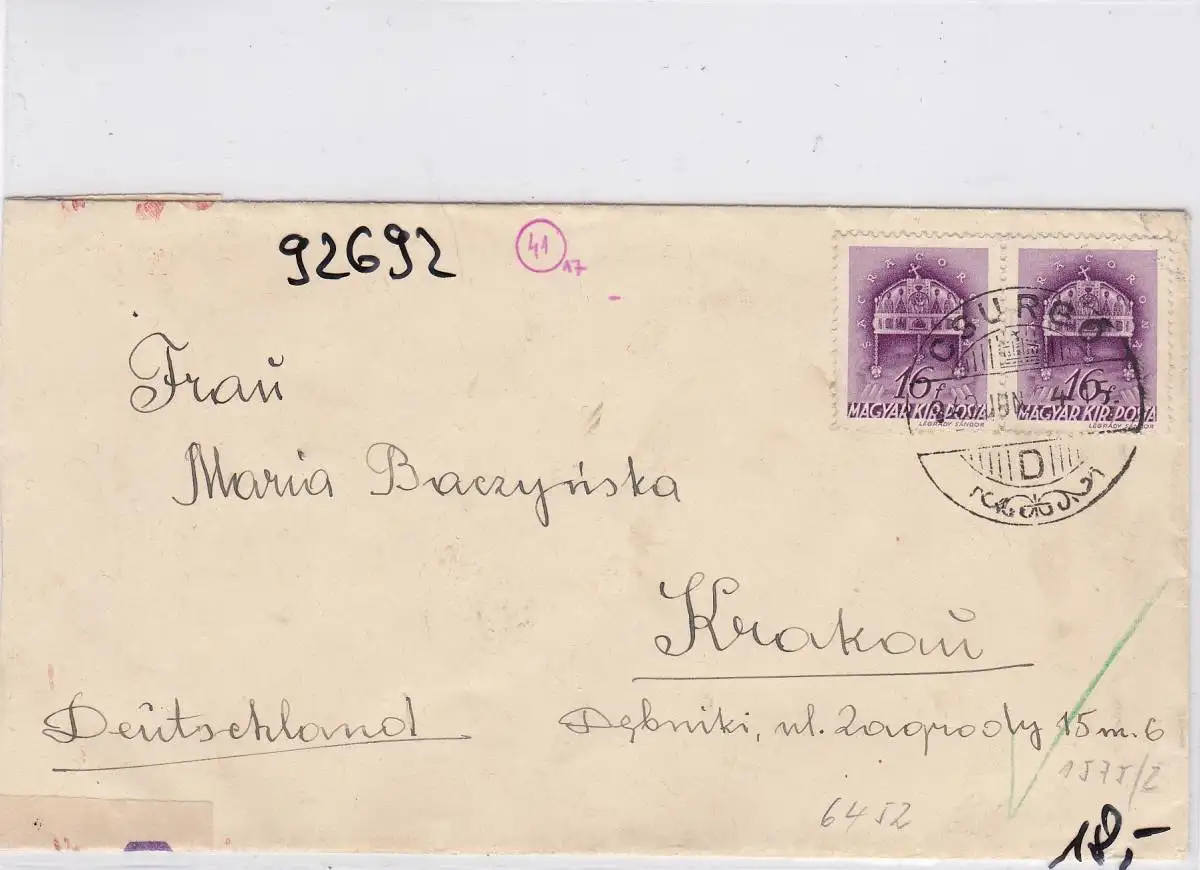 92692
41
17
SACRA CORONA SACRA CORONA
16 f. 16 f.
MAGYAR KIR. POSTA MAGYAR KIR. POSTA
LÉGRÁDY SÁNDOR LÉGRÁDY SÁNDOR
CSURGÓ
D
Frau
Maria Baczyńska
Krakau
Deutschland
Dębniki, ul. Zagrody 15 m. 6
1575/2
6452
18,-